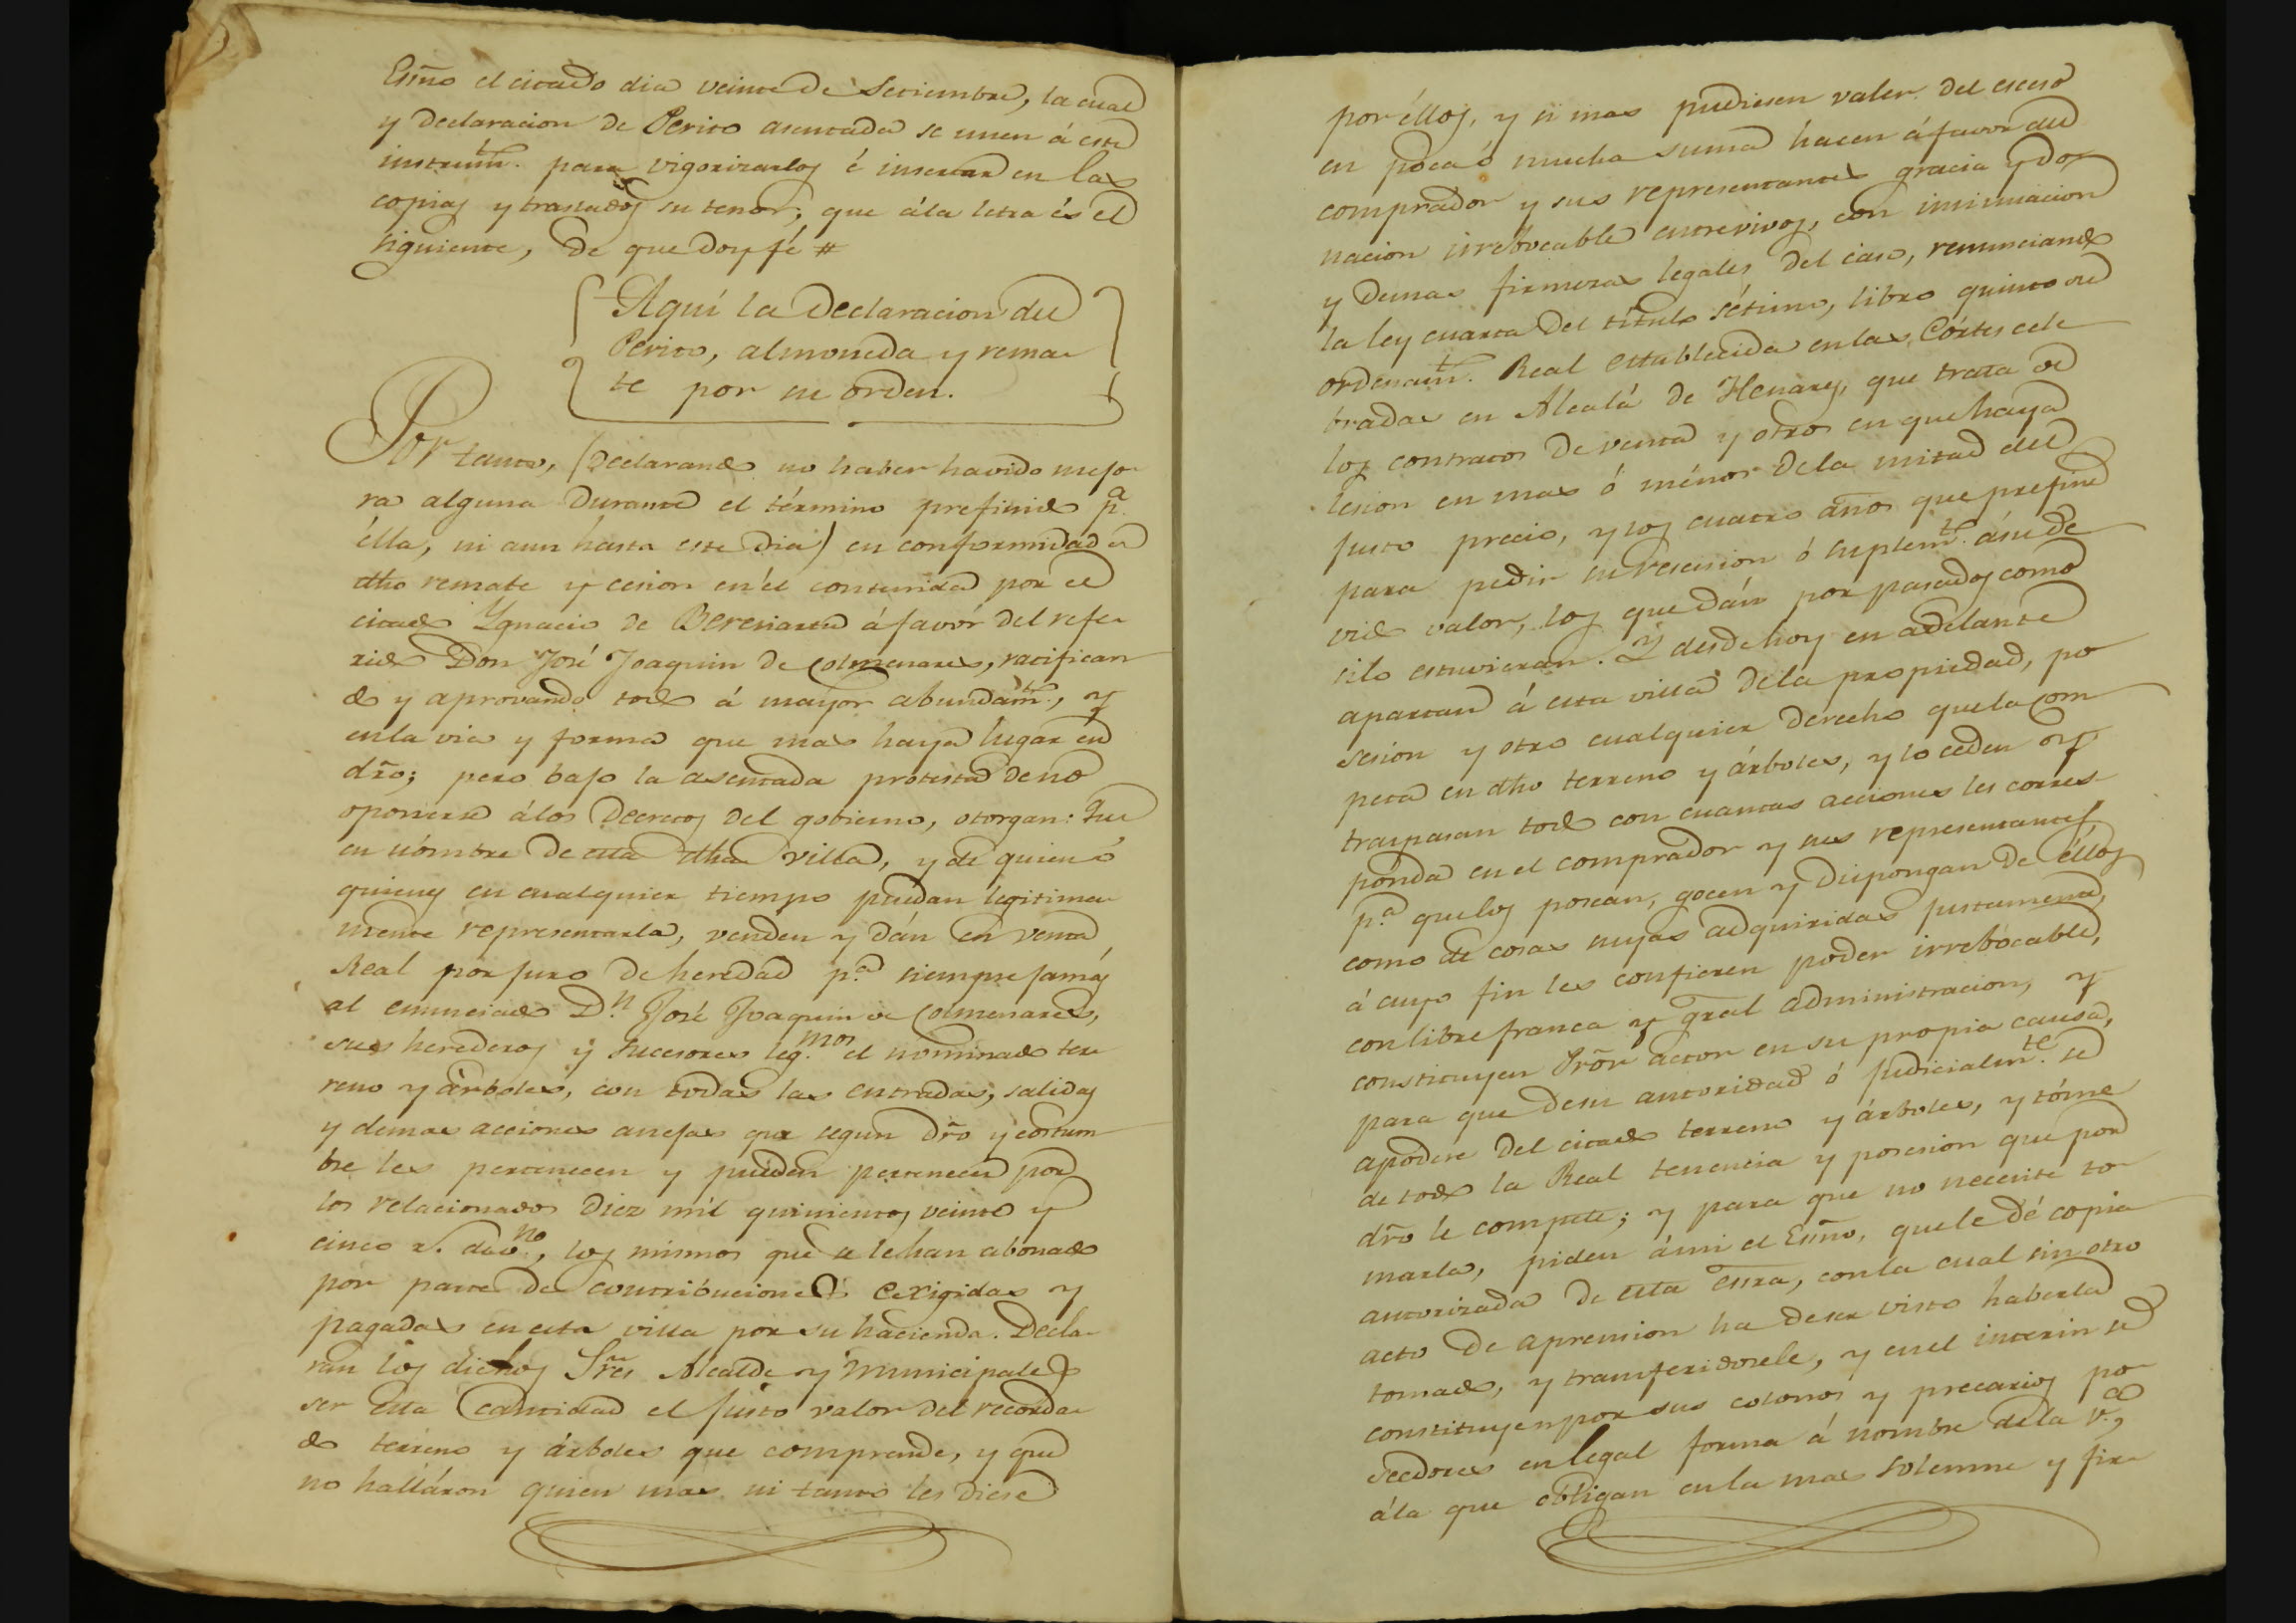 Essno el citado dia veinte de Setiembre, la cual
y declaracion de Perito asentada se unen á este
instrumto. para vigorizarlos é insertar en las
copias y traslados su tenor; que á la letra és el
siguiente, de que doy fé #
Aquí la declaracion del
Perito, almoneda y rema
te por su orden.
Por tanto, (declarando no haber havido mejo
ra alguna durante el término prefinido pa.
élla, ni aun hasta este dia) en conformidad de
dho remate y cesion en él contenida por el
citado Ygnacio de Beresiartu á favór del refe
rido Don José Joaquin de Colmenares, ratifican
do y aprovando todo á mayor abundamto., y
en la via y forma que mas haya lugar en
dr̃o; pero bajo la asentada protesta de no
oponerse á los Decretos del gobierno, otorgan: Que
en nómbre de esta dha villa, y de quien ó
quienes en cualquier tiempo puedan legitima
mente representarla, venden y dán en venta
Real por juro de heredad pa. siempre jamás
al enunciado Dn. José Joaquin de Colmenares,
sus herederos y sucesores legmos. el nominado ter
reno y árboles, con todas las entradas, salidas
y demas acciones anejas que segun dr̃o y costum
bre les pertenecen y pueden pertenecer por
los relacionados diez mil quinientos veinte y
cinco r. de vno., los mismos que se le han abonado
por parte de contribuciones exigidas y
pagadas en esta villa por su hacienda. Decla
ran los dichos Sres Alcalde y Municipales
ser esta cantidad el justo valor del recorda
do terreno y árboles que comprende, y que
no halláron quien mas ni tanto les diese
por éllos, y si mas pudiesen valer del esceso
en poca ó mucha suma hacen á favor del
comprador y sus representantes gracia y do
nacion irrebocable entrevivos, con insinuacion
y demas firmezas legales del caso, renunciando
la ley cuarta del título sétimo, libro quinto del
ordenamto. Real establecida en las Córtes cele
bradas en Alcalá de Henares, que trata de
los contratos de venta y otros en que haya
lesion en mas ó ménos de la mitad del
justo precio, y los cuatro años que prefine
para pedir su rescision ó suplemto. á su de
vido valor, los que dán por pasados como
si lo estuvieran. Y desde hoy en adelante
apartan á esta villa de la propiedad, po
sesion y otro cualquier derecho que la com
peta en dho terreno y árboles, y lo ceden y
traspasan todo con cuantas acciones les corres
ponda en el comprador y sus representantes
pa. que los posean, gocen y dispongan de éllos
como de cosas suyas adquiridas justamente,
á cuyo fin les confieren poder irrebocable,
con libre franca y gral administracion, y
constituyen Prõr actor en su propia causa,
para que de su autoridad ó judicialmte. se
apodere del citado terreno y árboles, y tóme
de todo la Real tenencia y posesion que por
dr̃o le compete; y para que no necesite to
marla, piden á mi el Essno, que le dé copia
autorizada de esta essra, con la cual sin otro
acto de aprension ha de ser visto haberla
tomado, y transferidosele, y en el interin se
constituyen por sus colonos y precarios po
seedores en legal forma á nombre de la va.,
á la que obligan en la mas solemne y fir